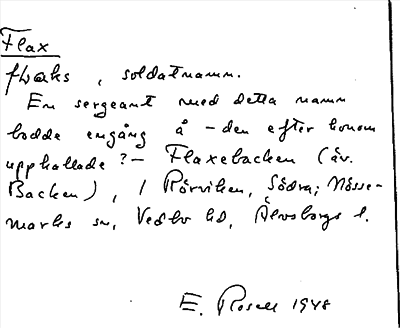 Flax
flaks, soldatnamn.
En sergeant med detta namn
bodde engång å – den efter honom
uppkallade? – Flaxebacken (äv.
Backen), i Rörviken, Södra; Nösse-
marks sn, Vedbo hd, Älvsborgs l.
E. Rosell 1948